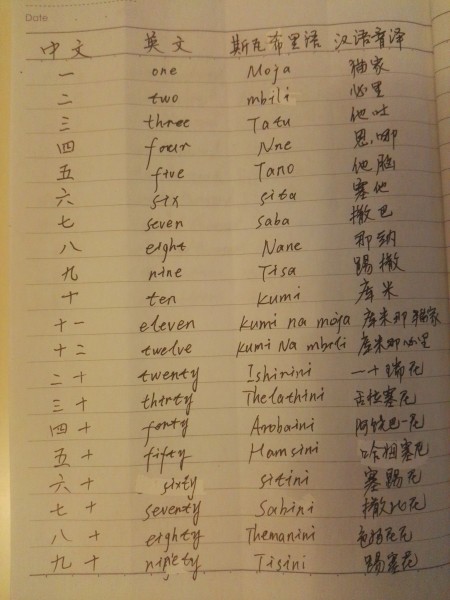 Date
中文 英文 斯瓦布里语 汉语音译
一 one Moja 猫家
二 two mbili 必里
三 three Tatu 他吐
四 four Nne 恩.哪
五 five Tano 他脑
六 six sita 塞他
七 seven saba 撒巴
八 eight Nane 那纳
九 nine Tisa 踢撒
十 ten kumi 库米
十一 eleven kumi na moja 库米那猫家
十二 twelve kumi Na mbili 库米那必里
二十 twenty Ishirini 一十瑞尼
三十 thirty Thelathini 舌拉塞尼
四十 forty Arobaini 阿饶巴一尼
五十 fifty Hamsini 哈姆塞尼
六十 sixty sitini 塞踢尼
七十 seventy Sabini 撒比尼
八十 eighty Themanini
九十 ninety Tisini 踢塞尼